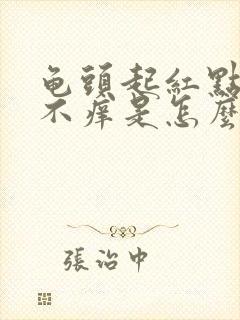 龟頭起紅點
不痒是怎麼
張治中